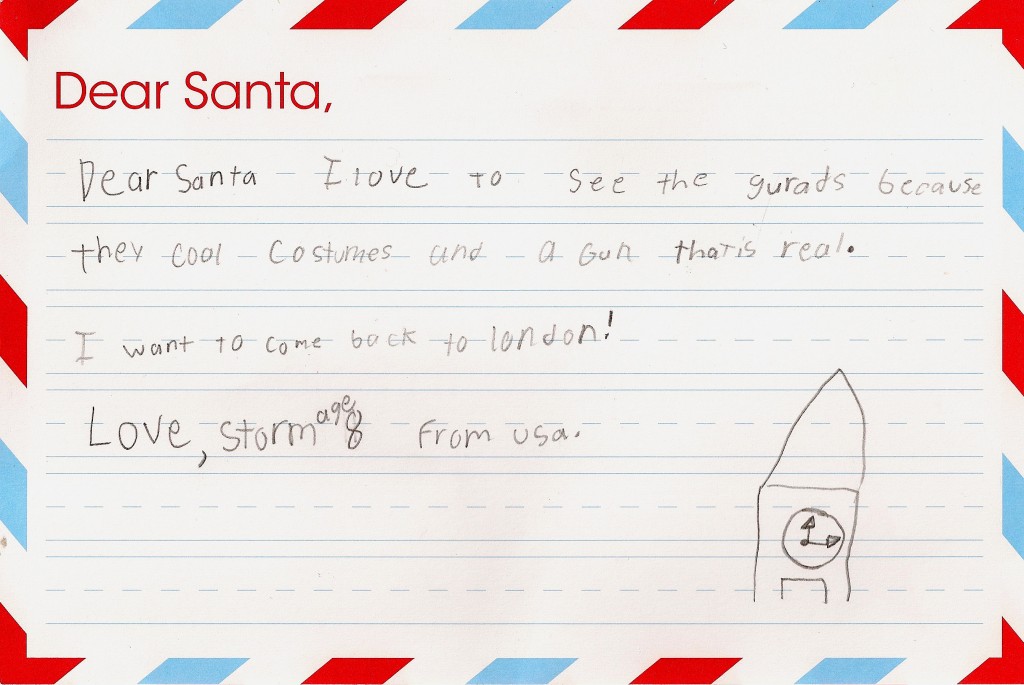 Dear Santa,
Dear Santa I love to see the gurads because
they cool Costumes and a Gun that is real.
I want to come back to london!
Love, Storm age 8 From usa.